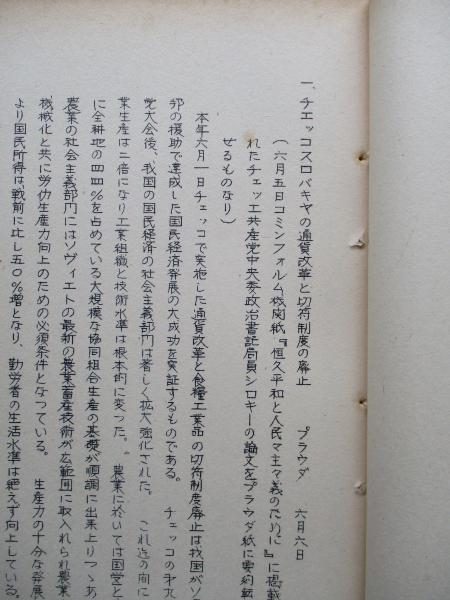 一、チェッコスロバキヤの通貨改革と切符制度の廃止　プラウダ　六月六日
（六月五日コミンフォルム機関紙『恒久平和と人民マ主々義のために』に掲載
れたチェッコ共産党中央委政治書記局員シロキーの論文をプラウダ紙に要約転
せるものなり）
本年六月一日チェッコで実施した通貨改革と食糧工業品の切符制度廃止は我国がソ
邦の援助で達成した国民経済発展の大成功を実証するものである。　チェッコの第九
党大会後、我国の国民経済の社会主義部門は著しく拡大強化された。　これ迄の间に
業生産は二倍になり工業組織と技術水準は根本的に変った。　農業に於いては国営と
に全耕地の四四%を占めている大規模な協同組合生産の基礎が順調に出来上りつゝあ
農業の社会主義部門にはソヴィエトの最新の農業畜産技術が広範囲に取入れられ農業
機械化と共に労仂生産力向上のための必須条件となっている。　生産力の十分な発展
より国民所得は戦前に比し五〇%増となり、勤労者の生活水準は絶えず向上している。